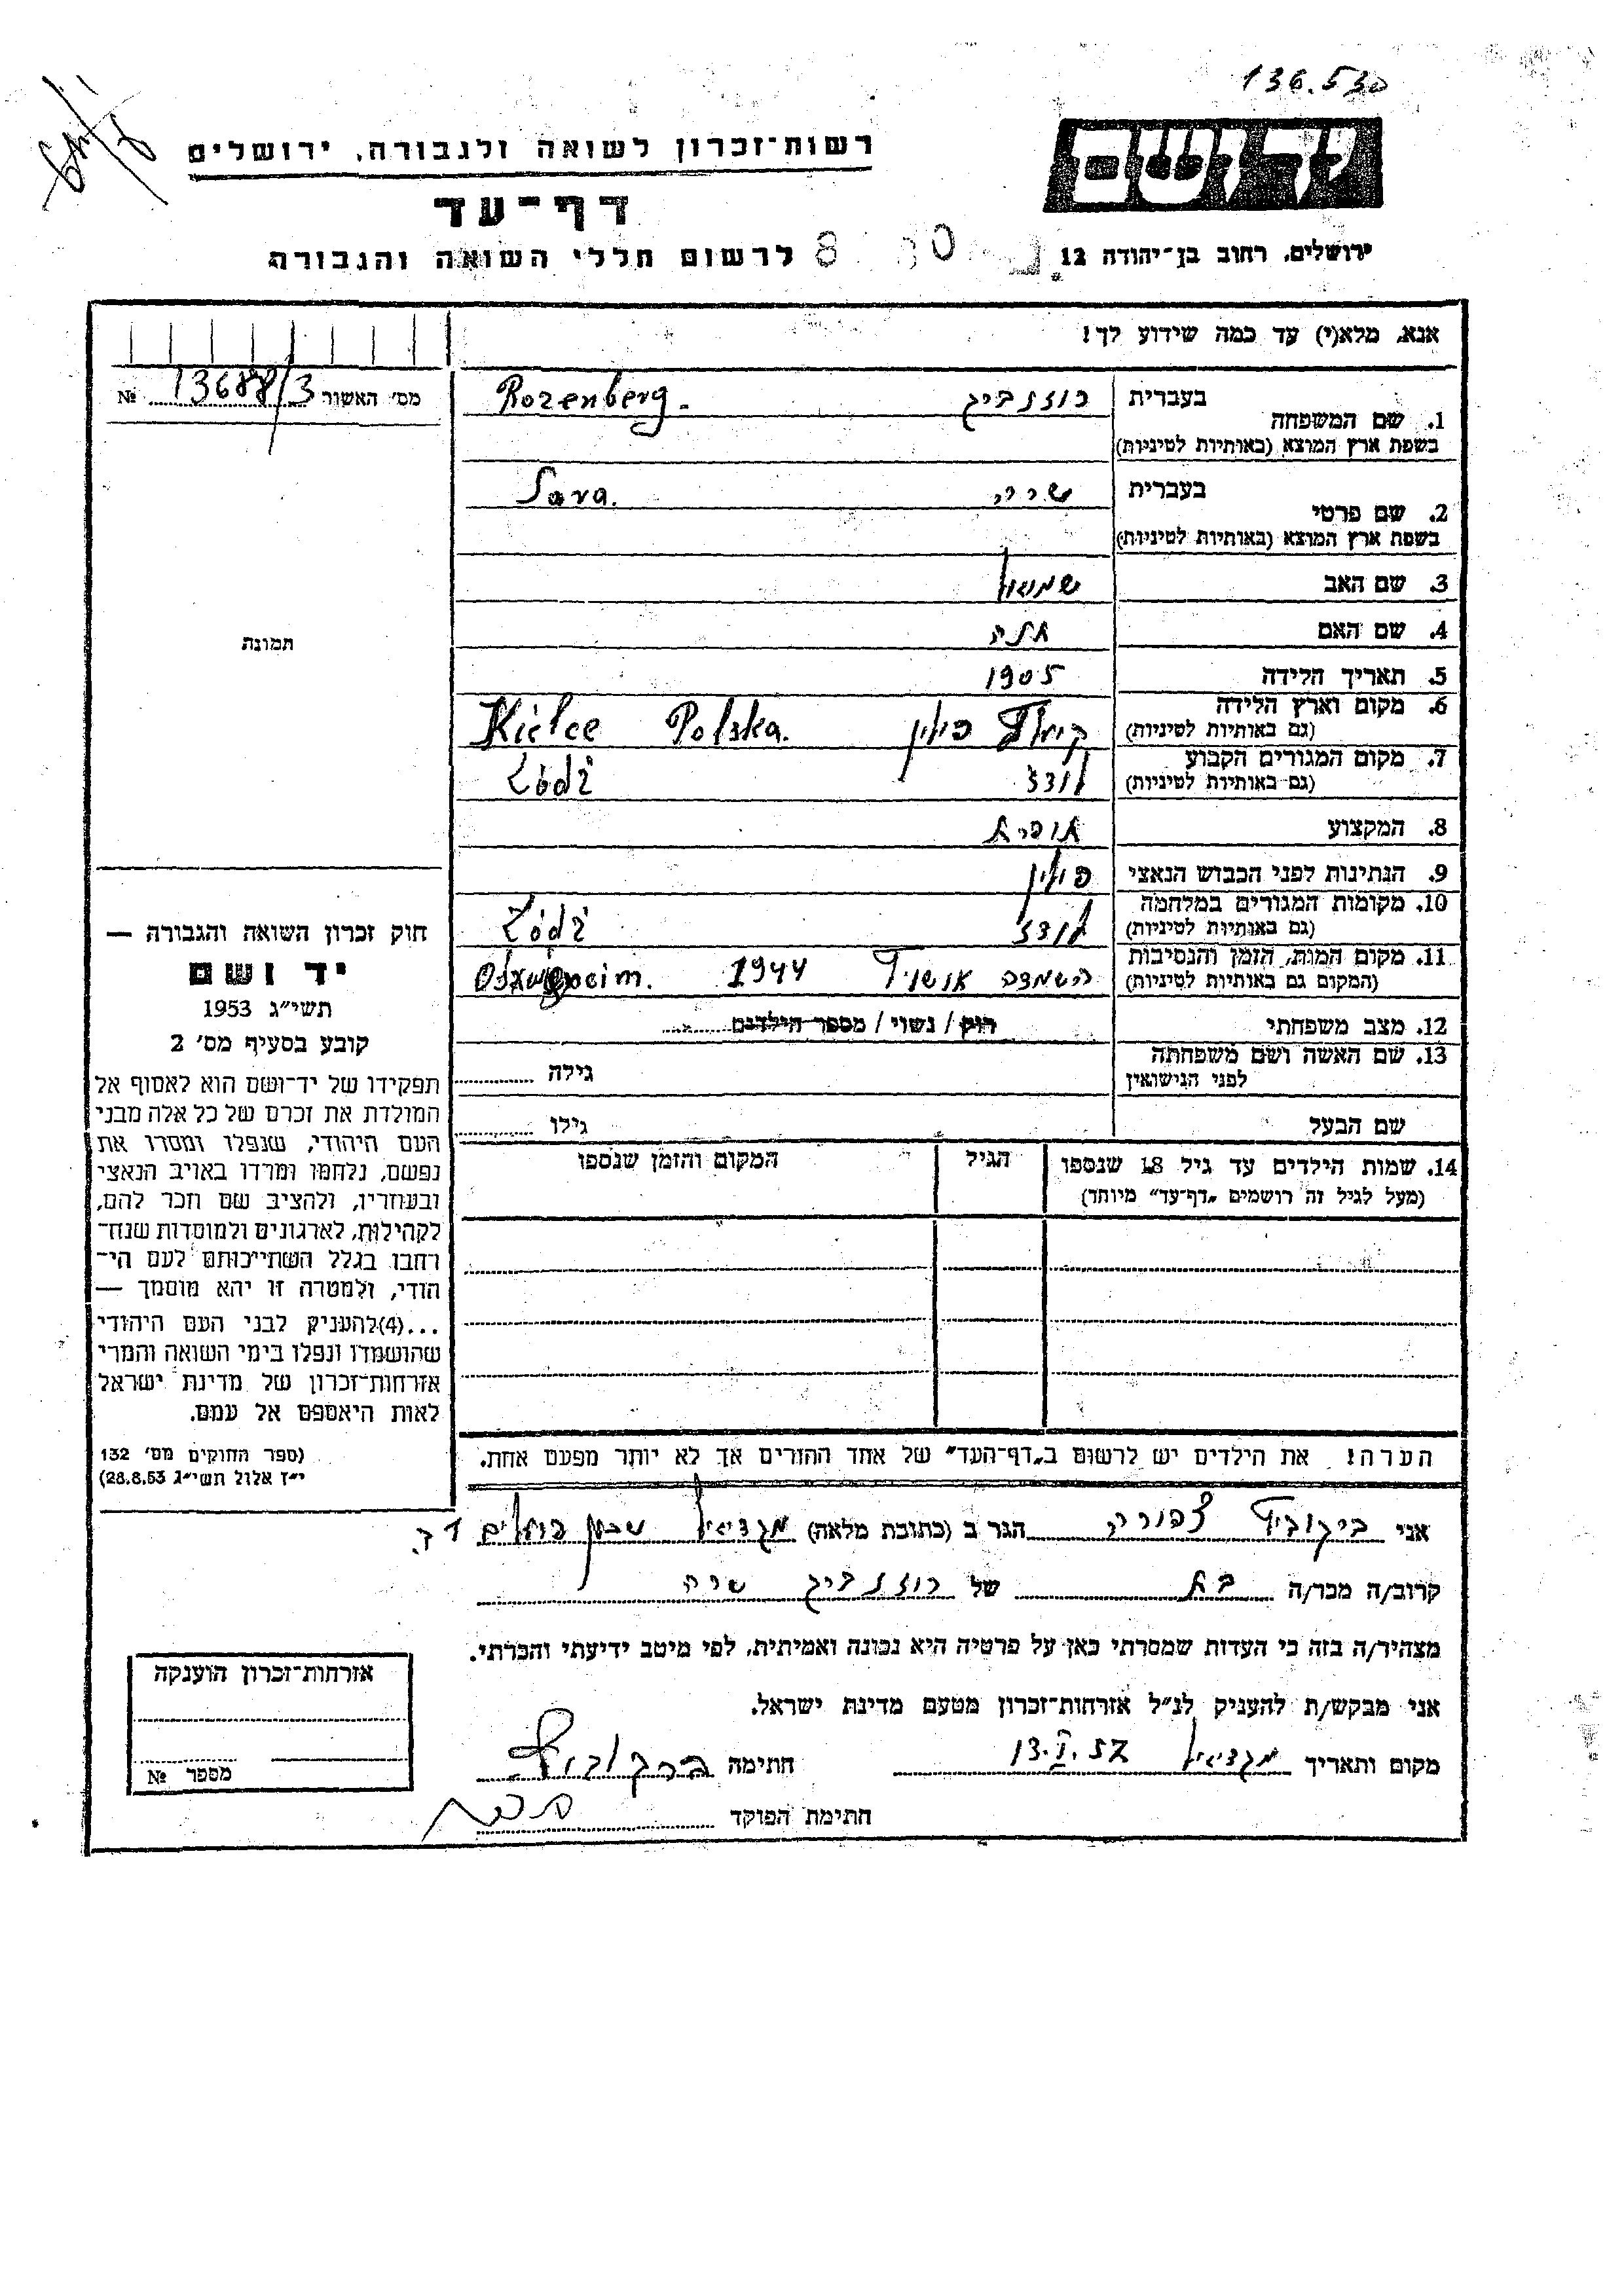 136.530
רשות־זכרון לשואה ולגבורה, ירושלים
יד ושם
דף־עד
לרשום חללי השואה והגבורה
ירושלים, רחוב בן־יהודה 12
אנא, מלא(י) עד כמה שידוע לך!
מס׳ האשור 13688/3 №
1. שם המשפחה בעברית רוזנברג Rozenberg.
בשפת ארץ המוצא (באותיות לטיניות)
2. שם פרטי בעברית שרה Sara.
בשפת ארץ המוצא (באותיות לטיניות)
3. שם האב שמואל
4. שם האם
5. תאריך הלידה 1905
6. מקום וארץ הלידה קילץ פולין Kielce Polska.
(גם באותיות לטיניות)
7. מקום המגורים הקבוע לודז Łódź
(גם באותיות לטיניות)
8. המקצוע
9. הנתינות לפני הכבוש הנאצי פולין
10. מקומות המגורים במלחמה לודז Łódź
(גם באותיות לטיניות)
11. מקום המות, הזמן והנסיבות השמדה אושויץ 1944
(המקום גם באותיות לטיניות)
12. מצב משפחתי רוק / נשוי / מספר הילדים
13. שם האשה ושם משפחתה
לפני הנישואין
גילה
שם הבעל גילו
14. שמות הילדים עד גיל 18 שנספו הגיל המקום והזמן שנספו
(מעל לגיל זה רושמים „דף־עד״ מיוחד)
הערה! את הילדים יש לרשום ב„דף־העד״ של אחד ההורים אך לא יותר מפעם אחת.
תמונה
חוק זכרון השואה והגבורה —
יד ושם
תשי״ג 1953
קובע בסעיף מס׳ 2
תפקידו של יד־ושם הוא לאסוף אל
המולדת את זכרם של כל אלה מבני
העם היהודי, שנפלו ומסרו את
נפשם, נלחמו ומרדו באויב הנאצי
ובעוזריו, ולהציב שם וזכר להם,
לקהילות, לארגונים ולמוסדות שנח־
רבו בגלל השתייכותם לעם הי־
הודי, ולמטרה זו יהא מוסמך —
...(4)להעניק לבני העם היהודי
שהושמדו ונפלו בימי השואה והמרי
אזרחות־זכרון של מדינת ישראל
לאות היאספם אל עמם.
(ספר החוקים מס׳ 132
י״ז אלול תשי״ג 28.8.53)
אני ברקוביץ צפורה הגר ב (כתובת מלאה) מגדיאל שכון פועלים
קרוב/ה מכר/ה בת של רוזנברג שרה
מצהיר/ה בזה כי העדות שמסרתי כאן על פרטיה היא נכונה ואמיתית, לפי מיטב ידיעתי והכרתי.
אני מבקש/ת להעניק לנ״ל אזרחות־זכרון מטעם מדינת ישראל.
מקום ותאריך מגדיאל 13.I.57 חתימה ברקוביץ
חתימת הפוקד
אזרחות־זכרון הוענקה
מספר №